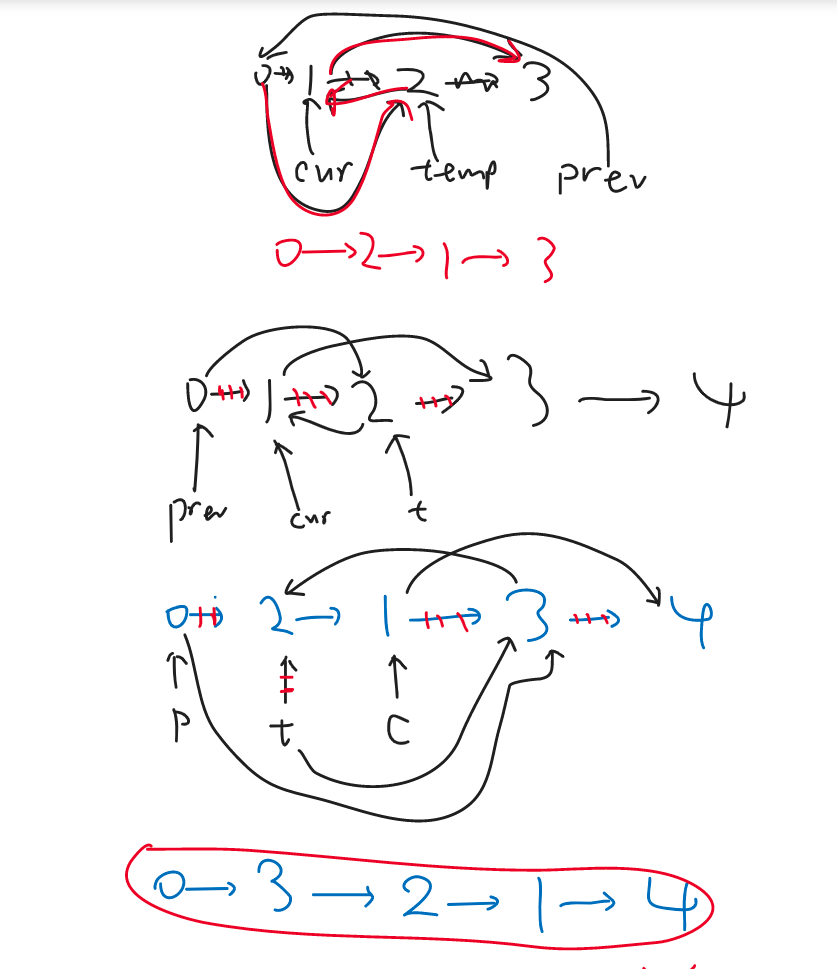 0 → 1 → 2 → 3
cur temp prev
0 → 2 → 1 → 3
0 → 1 → 2 → 3 → 4
prev cur t
0 → 2 → 1 → 3 → 4
P t C
0 → 3 → 2 → 1 → 4